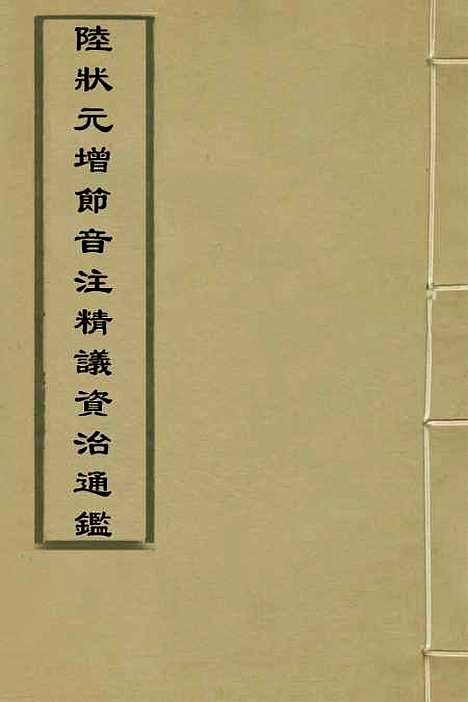 陸狀元增節音注精議資治通鑑